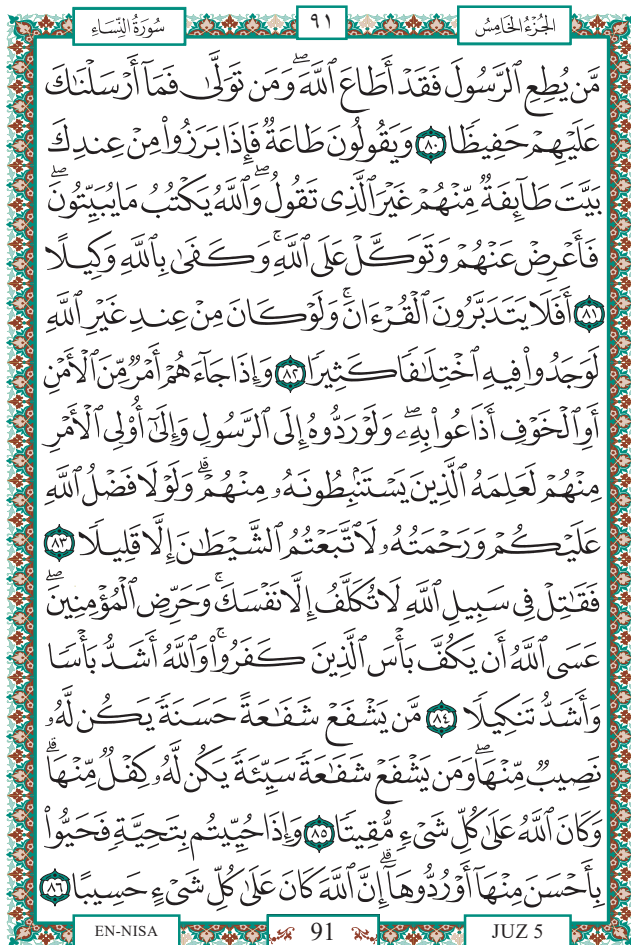 سُورَةُ النِّسَاءِ ٩١ الجُزْءُ الخَامِسُ
مَّن يُطِعِ ٱلرَّسُولَ فَقَدْ أَطَاعَ ٱللَّهَ ۖ وَمَن تَوَلَّىٰ فَمَآ أَرْسَلْنَٰكَ
عَلَيْهِمْ حَفِيظًا ٨٠ وَيَقُولُونَ طَاعَةٌ فَإِذَا بَرَزُوا۟ مِنْ عِندِكَ
بَيَّتَ طَآئِفَةٌ مِّنْهُمْ غَيْرَ ٱلَّذِى تَقُولُ ۖ وَٱللَّهُ يَكْتُبُ مَا يُبَيِّتُونَ ۖ
فَأَعْرِضْ عَنْهُمْ وَتَوَكَّلْ عَلَى ٱللَّهِ ۚ وَكَفَىٰ بِٱللَّهِ وَكِيلًا
٨١ أَفَلَا يَتَدَبَّرُونَ ٱلْقُرْءَانَ ۚ وَلَوْ كَانَ مِنْ عِندِ غَيْرِ ٱللَّهِ
لَوَجَدُوا۟ فِيهِ ٱخْتِلَٰفًا كَثِيرًا ٨٢ وَإِذَا جَآءَهُمْ أَمْرٌ مِّنَ ٱلْأَمْنِ
أَوِ ٱلْخَوْفِ أَذَاعُوا۟ بِهِۦ ۖ وَلَوْ رَدُّوهُ إِلَى ٱلرَّسُولِ وَإِلَىٰٓ أُو۟لِى ٱلْأَمْرِ
مِنْهُمْ لَعَلِمَهُ ٱلَّذِينَ يَسْتَنۢبِطُونَهُۥ مِنْهُمْ ۗ وَلَوْلَا فَضْلُ ٱللَّهِ
عَلَيْكُمْ وَرَحْمَتُهُۥ لَٱتَّبَعْتُمُ ٱلشَّيْطَٰنَ إِلَّا قَلِيلًا ٨٣
فَقَٰتِلْ فِى سَبِيلِ ٱللَّهِ لَا تُكَلَّفُ إِلَّا نَفْسَكَ ۚ وَحَرِّضِ ٱلْمُؤْمِنِينَ ۖ
عَسَى ٱللَّهُ أَن يَكُفَّ بَأْسَ ٱلَّذِينَ كَفَرُوا۟ ۚ وَٱللَّهُ أَشَدُّ بَأْسًا
وَأَشَدُّ تَنكِيلًا ٨٤ مَّن يَشْفَعْ شَفَٰعَةً حَسَنَةً يَكُن لَّهُۥ
نَصِيبٌ مِّنْهَا ۖ وَمَن يَشْفَعْ شَفَٰعَةً سَيِّئَةً يَكُن لَّهُۥ كِفْلٌ مِّنْهَا ۗ
وَكَانَ ٱللَّهُ عَلَىٰ كُلِّ شَىْءٍ مُّقِيتًا ٨٥ وَإِذَا حُيِّيتُم بِتَحِيَّةٍ فَحَيُّوا۟
بِأَحْسَنَ مِنْهَآ أَوْ رُدُّوهَآ ۗ إِنَّ ٱللَّهَ كَانَ عَلَىٰ كُلِّ شَىْءٍ حَسِيبًا ٨٦
EN-NISA 91 JUZ 5